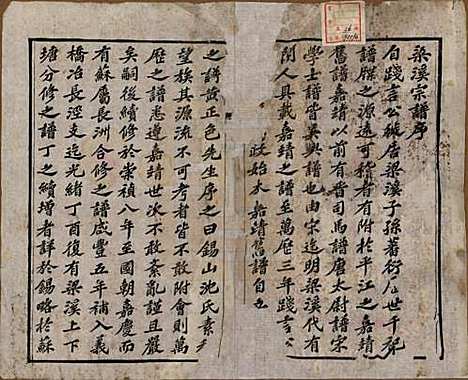 梁溪宗譜序
自踐言公徙居梁溪子孫著衍奕世千祀
譜牒之源遠可稽者有附於平江之嘉靖
舊譜嘉靖以前有晉司馬譜唐太尉譜宋
學士譜皆吳興譜也由宋迄明梁溪代有
聞人具載嘉靖之譜至萬厯三年踐言公
政始太 嘉靖舊譜自立
之譜黃正色先生序之曰錫山沈氏素
望族其源流不可考者皆不敢附會則萬
厯之譜悉遵嘉靖世次不敢紊亂謹且嚴
矣嗣後續修於崇禎八年至國朝嘉慶而
有蘇屬長洲合修之譜咸豐五年補入義
橋冶長涇支迄光緒丁酉復有梁溪上下
塘分修之譜丁之續增者詳於錫略於蘇